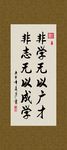 非学无以广才
非志无以成学